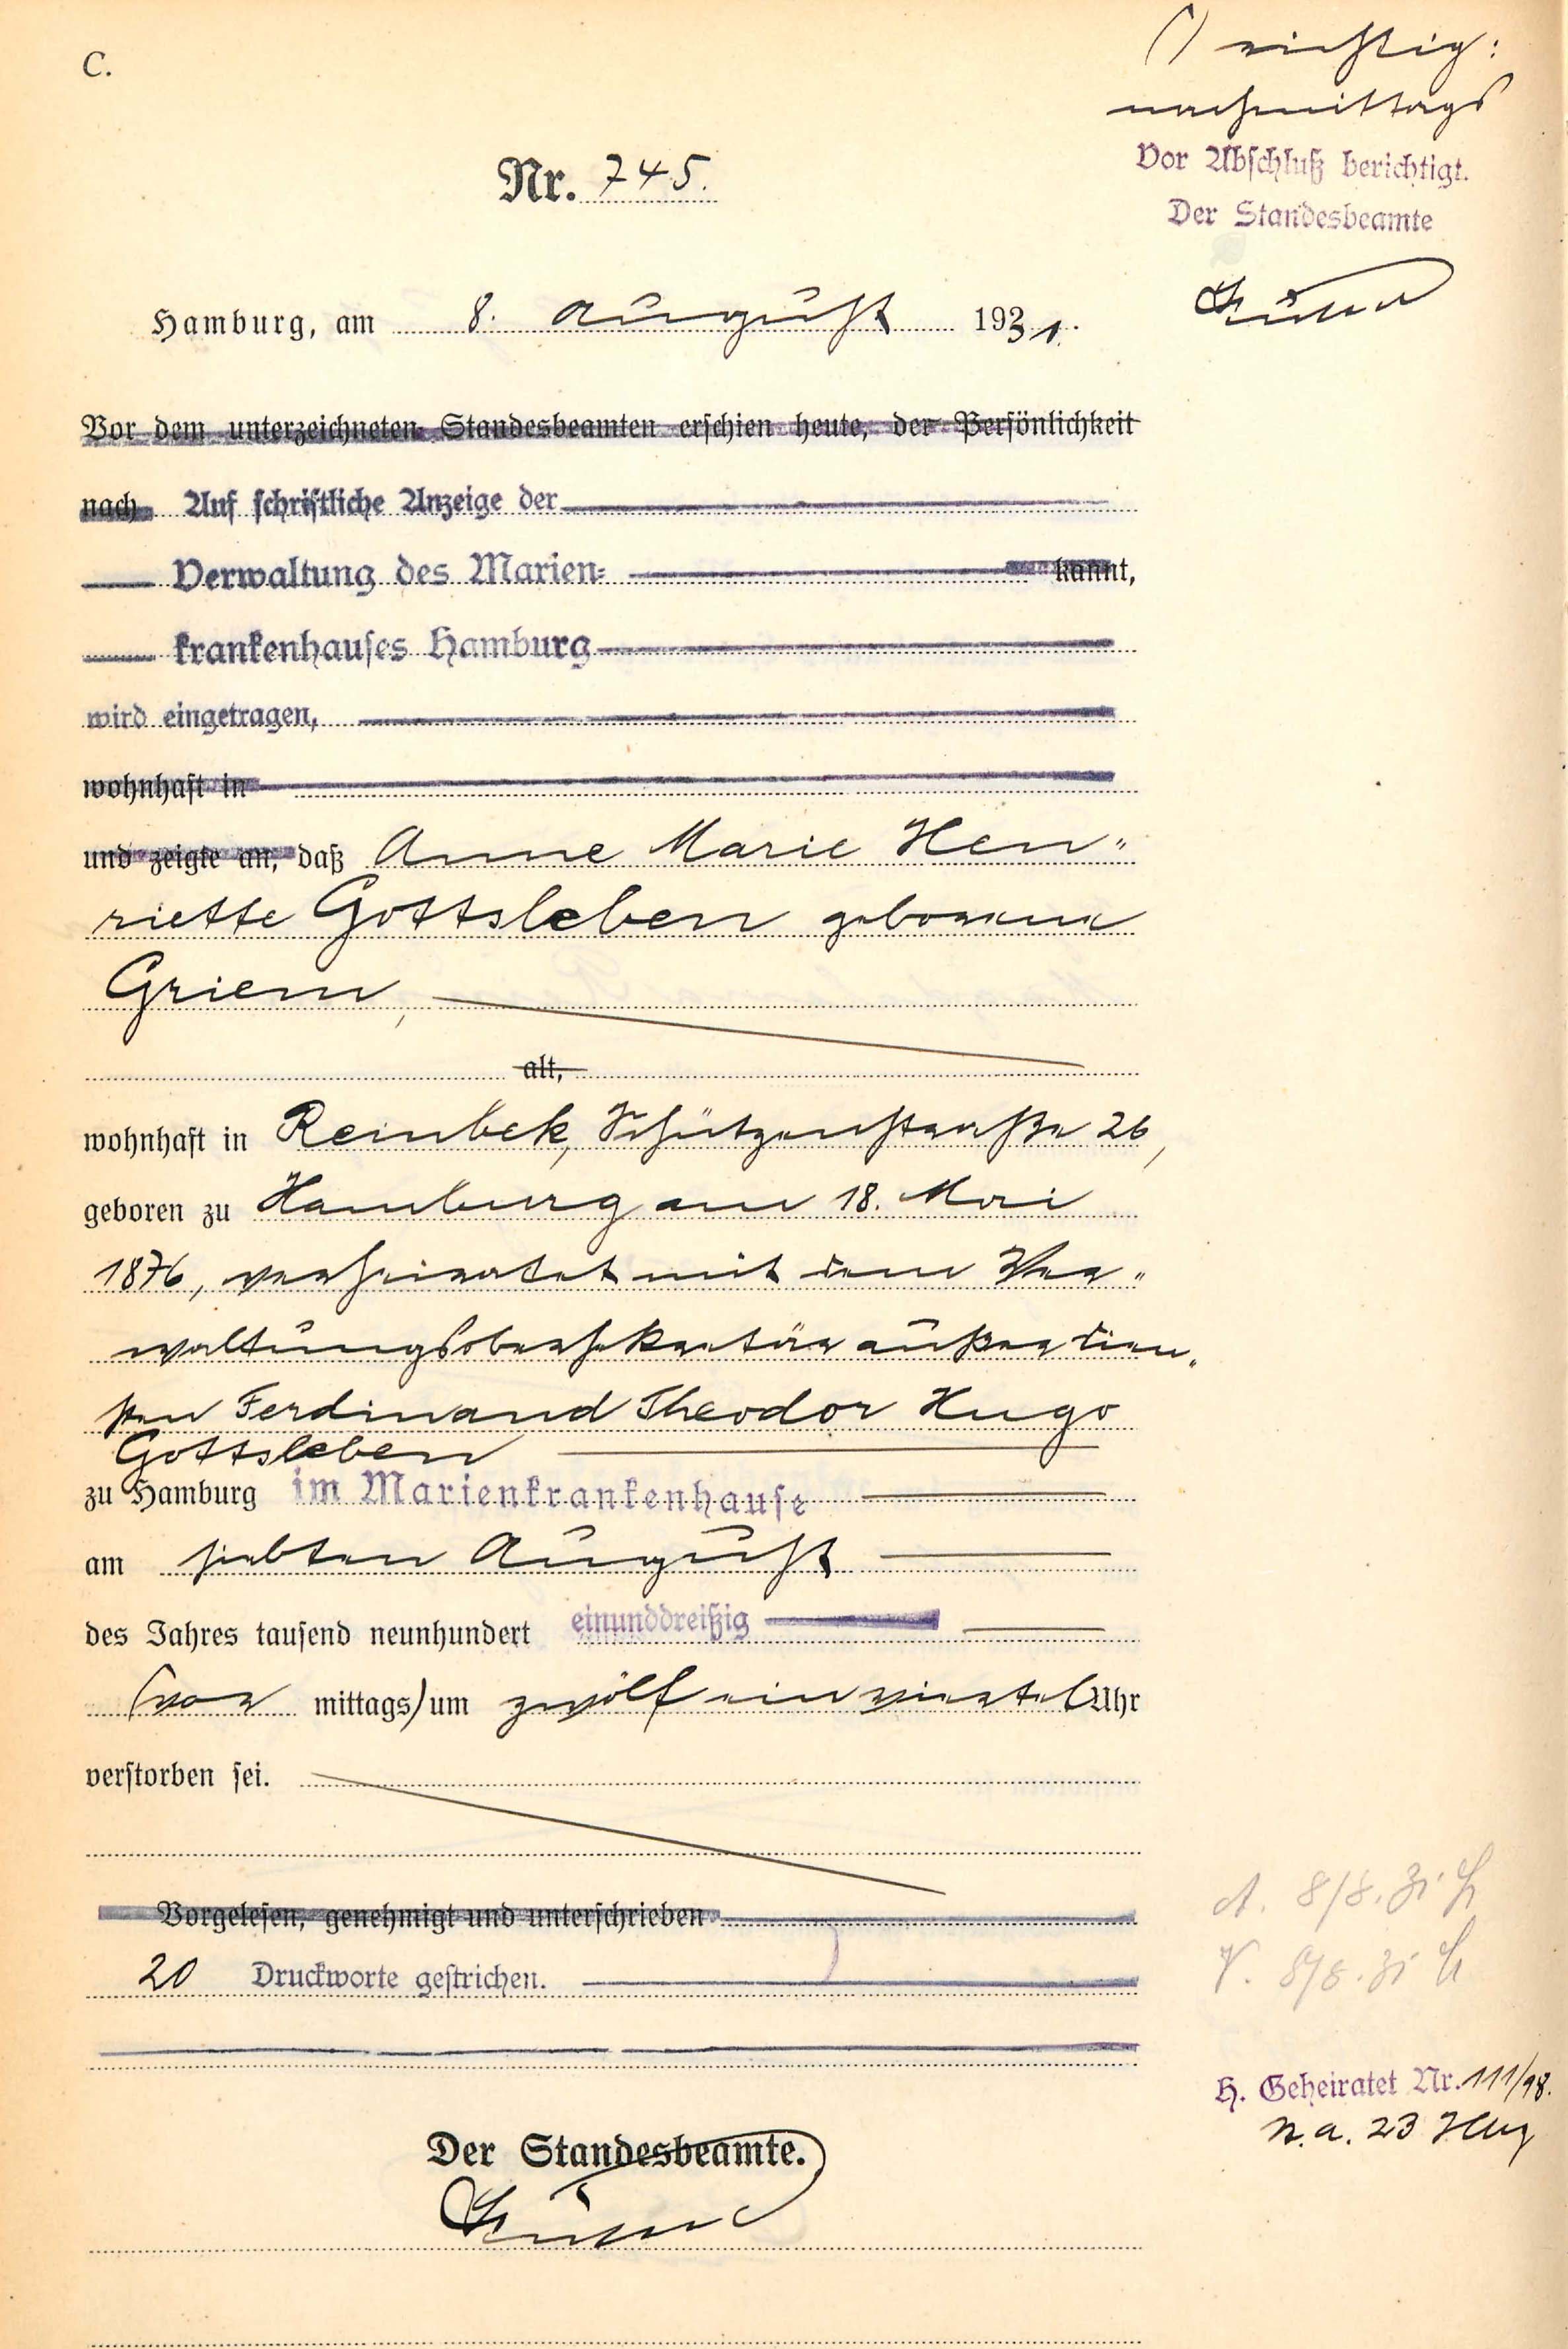 C.
() richtig:
nachmittags
Vor Abschluß berichtigt.
Der Standesbeamte
Nr. 745.
Hamburg, am 8. August 1931.
Vor dem unterzeichneten Standesbeamten erschien heute, der Persönlichkeit
nach Auf schriftliche Anzeige der
Verwaltung des Marien= kannt,
krankenhauses Hamburg
wird eingetragen,
wohnhaft in
und zeigte an, daß Anne Marie Hen"
riette Gottsleben geborene
Griem,
alt,
wohnhaft in Reinbek, Schützenstraße 26,
geboren zu Hamburg am 18. Mai
1876, verheiratet mit dem Ver"
waltungsobersekretär außer Dien"
sten Ferdinand Theodor Hugo
Gottsleben
zu Hamburg im Marienkrankenhause
am siebten August
des Jahres tausend neunhundert einunddreißig
(vor mittags) um zwölf ein viertel Uhr
verstorben sei.
Vorgelesen, genehmigt und unterschrieben
20 Druckworte gestrichen.
A. 8/8. 31
V. 8/8. 31
H. Geheiratet Nr. 111/98.
n. a. 23 Hbg
Der Standesbeamte.